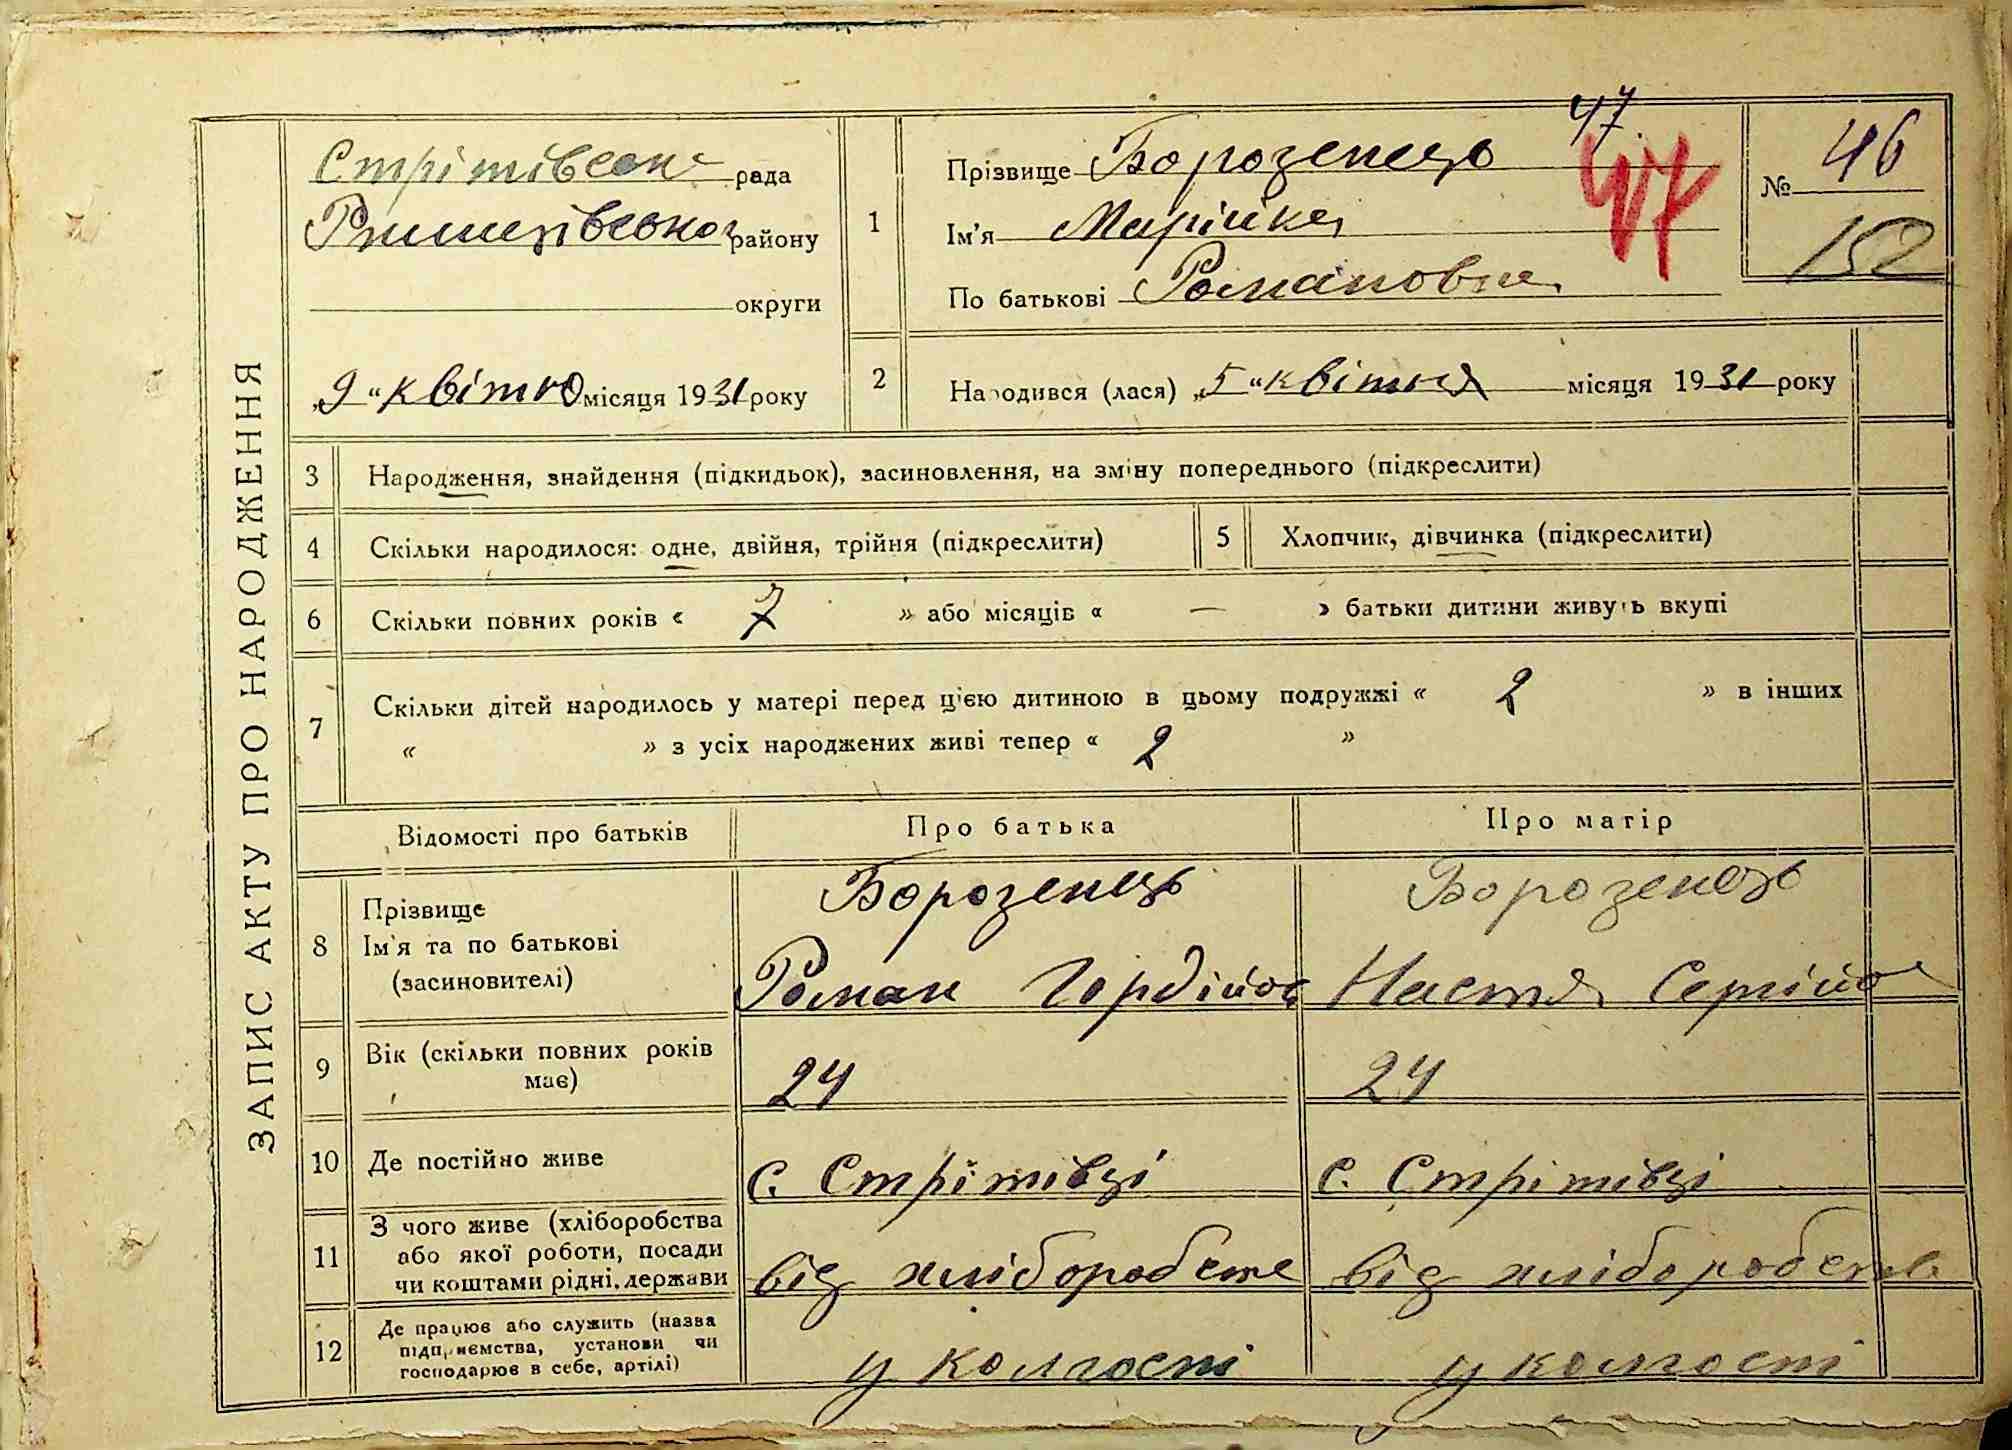 ЗАПИС АКТУ ПРО НАРОДЖЕННЯ
Стрітівськ рада
Ржищівської району
округи
„9“ квітня місяця 1931 року
47
47
№ 46
152
1
Прізвище Борозенець
Ім'я Марійка
По батькові Романовна
2
Народився (лася) „5“ квітня місяця 1931 року
3 Народження, знайдення (підкидьок), засиновлення, на зміну попереднього (підкреслити)
4 Скільки народилося: одне, двійня, трійня (підкреслити)
5 Хлопчик, дівчинка (підкреслити)
6 Скільки повних років « 7 » або місяців « — » батьки дитини живуть вкупі
7 Скільки дітей народилось у матері перед цією дитиною в цьому подружжі « 2 » в інших
« » з усіх народжених живі тепер « 2 »
Відомості про батьків Про батька Про матір
8 Прізвище
Ім'я та по батькові
(засиновителі)
Борозенець
Роман Гордійов
Борозенець
Настя Сергійо
9 Вік (скільки повних років
має)
24 24
10 Де постійно живе с. Стрітівці с. Стрітівці
11 З чого живе (хліборобства
або якої роботи, посади
чи коштами рідні, держави
від хліборобств від хліборобств
12 Де працює або служить (назва
підприємства, установи чи
господарює в себе, артілі)
у колгоспі у колгосп